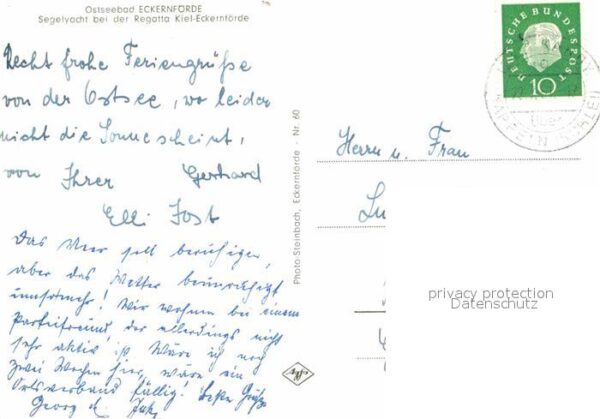 Ostseebad ECKERNFÖRDE
Segelyacht bei der Regatta Kiel-Eckernförde
Recht frohe Feriengrüße
von der Ostsee, wo leider
nicht die Sonne scheint,
von Ihrer Gerhard
Elli Jost
Das Meer soll beruhigen,
aber das Wetter beunruhigt
umsomehr! Wir wohnen bei einem
Parteifreund, der allerdings nicht
sehr aktiv ist. Wäre ich noch
zwei Wochen hier, wäre ein
Ortsverband fällig! Beste Grüße
Georg u.
Photo-Steinbach, Eckernförde - Nr. 60
Agfa
DEUTSCHE BUNDESPOST
10
über
Herrn u. Frau
Lu
privacy protection
Datenschutz